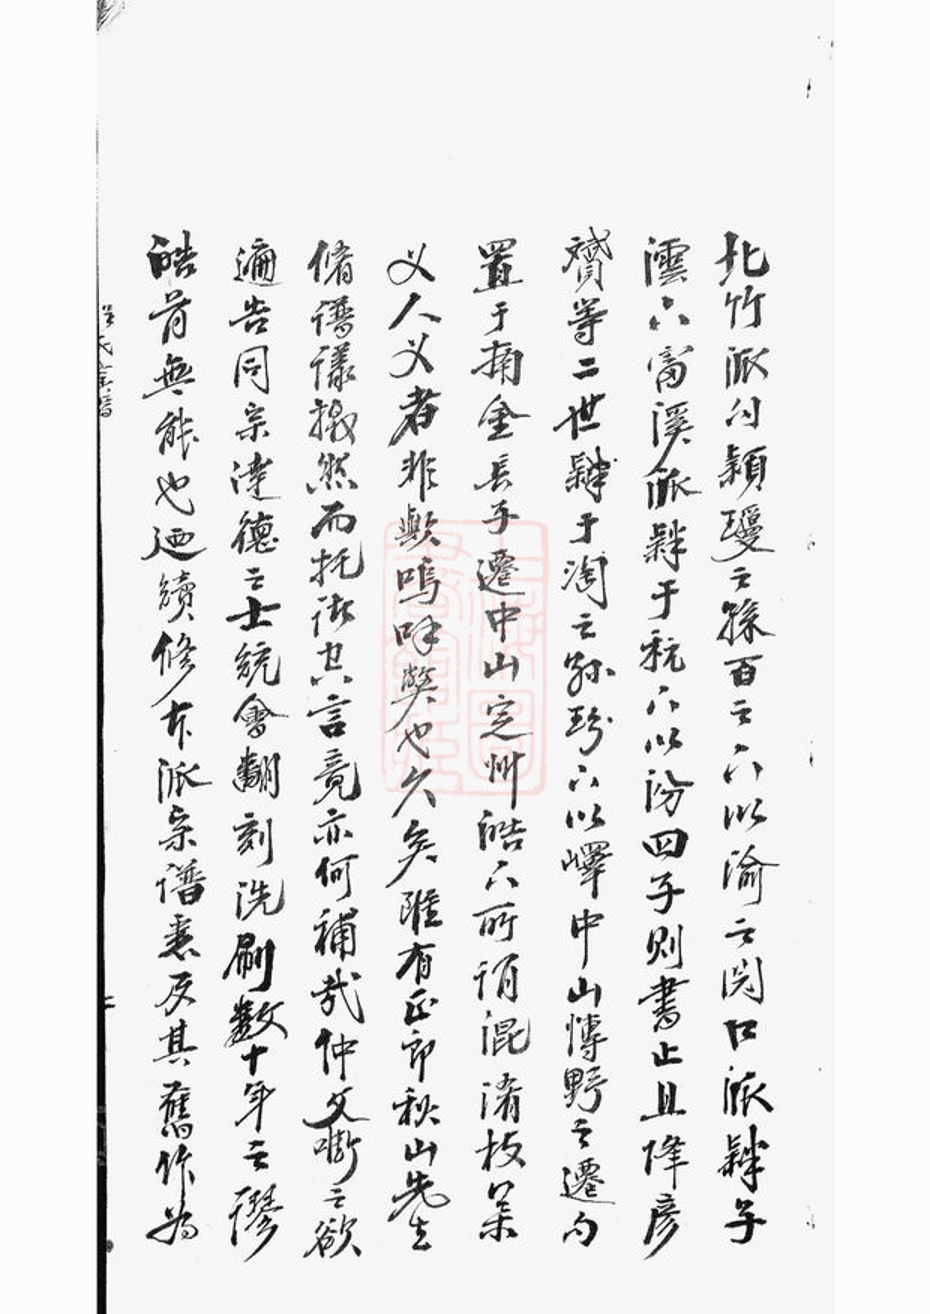 北竹派勾穎璦之孫百之下以渝之閔口派肄子
澐下富溪派肄于秔下以汾四子則書止且降彥
贇等二世肄于渹之孫珍下以嶧中山博野之遷勾
置于楠金長子遷中山定州皓下所謂混淆枝葉
父人父者非歟嗚呼獘也久矣雖有正郎秋山先生
脩譜議撥然而托諸空言竟亦何補哉仲文慚之欲
遍告同宗達德之士統會翻刻洗刷数十年之謬
皓首無能也迺續修本派宗譜悉反其舊作為